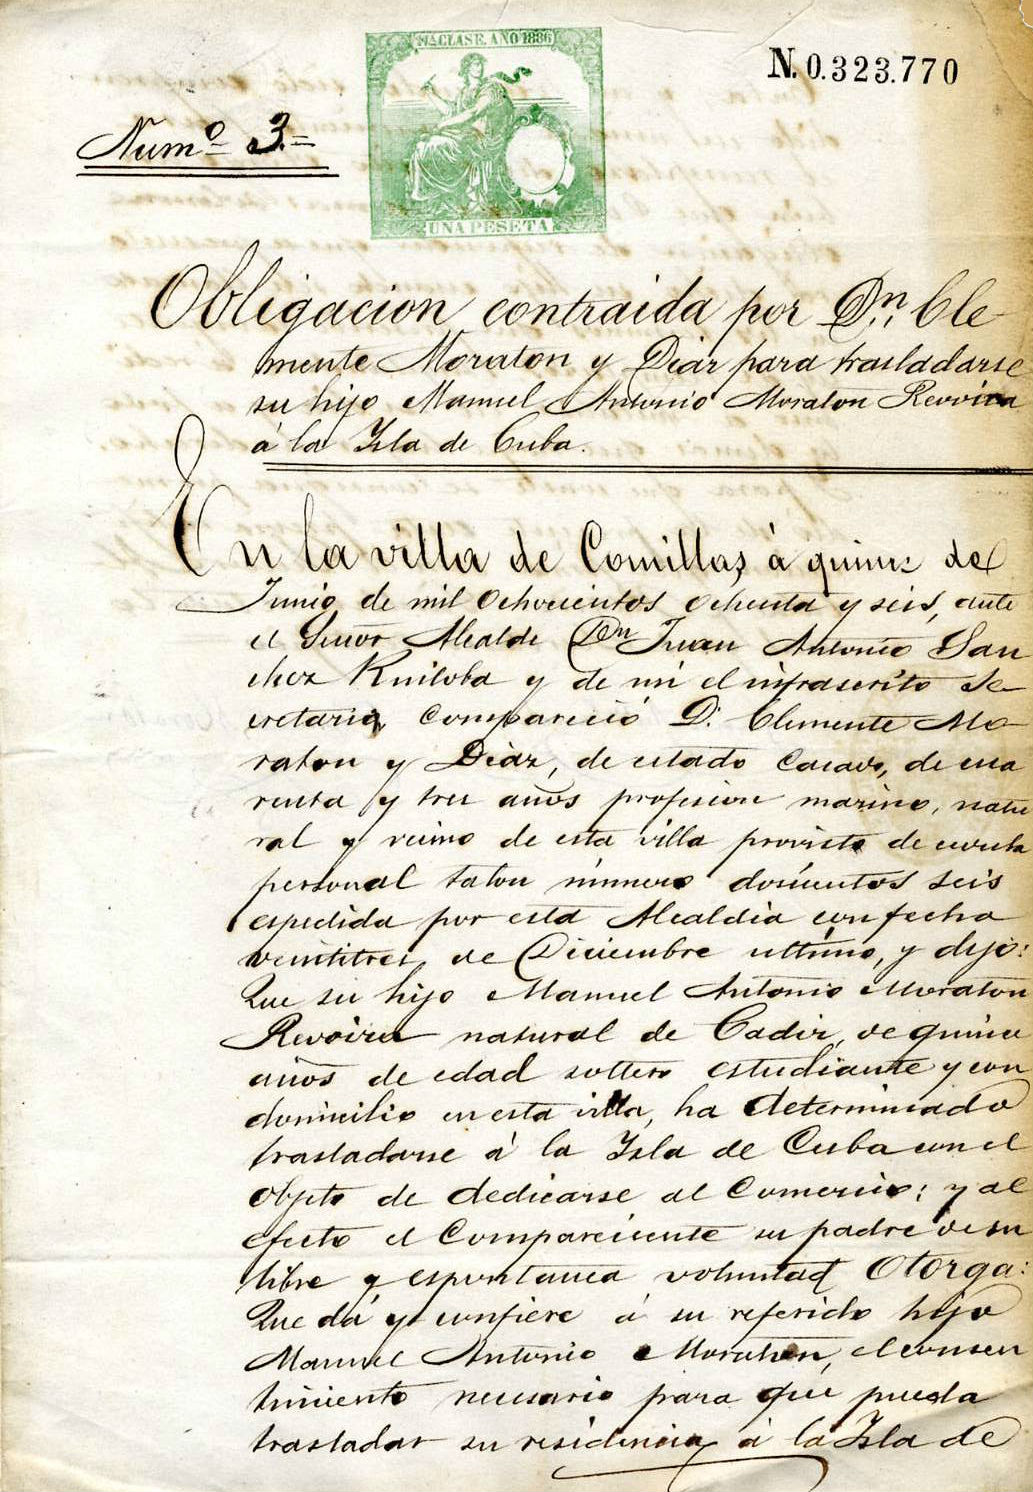 11ª CLASE. AÑO 1886
N. 0.323.770
Numº 3.=
UNA PESETA
Obligacion contraida por Dn. Cle-
mente Moraton y Diaz para trasladarse
su hijo Manuel Antonio Moraton Revoira
á la Isla de Cuba.
En la villa de Comillas á quince de
Junio de mil ochocientos ochenta y seis, ante
el Señor Alcalde Dn Juan Antonio San
chez y de mi el infrascrito Se-
cretario, compareció D. Clemente Mo-
raton y Diaz, de estado casado, de cua
renta y tres años profesion marino, natu
ral y vecino de esta villa provisto de cedula
personal talon número doscientos seis
espedida por esta Alcaldia con fecha
veintitres de Diciembre ultimo, y dijo:
Que su hijo Manuel Antonio Moraton
Revoira natural de Cadiz, de quince
años de edad soltero estudiante y con
domicilio en esta villa, ha determinado
trasladarse á la Isla de Cuba con el
objeto de dedicarse al Comercio; y al
efecto el Compareciente su padre de su
libre y espontanea voluntad Otorga:
Que dá y confiere á su referido hijo
Manuel Antonio Moraton, el consen
timiento necesario para que pueda
trasladar su residencia á la Isla de